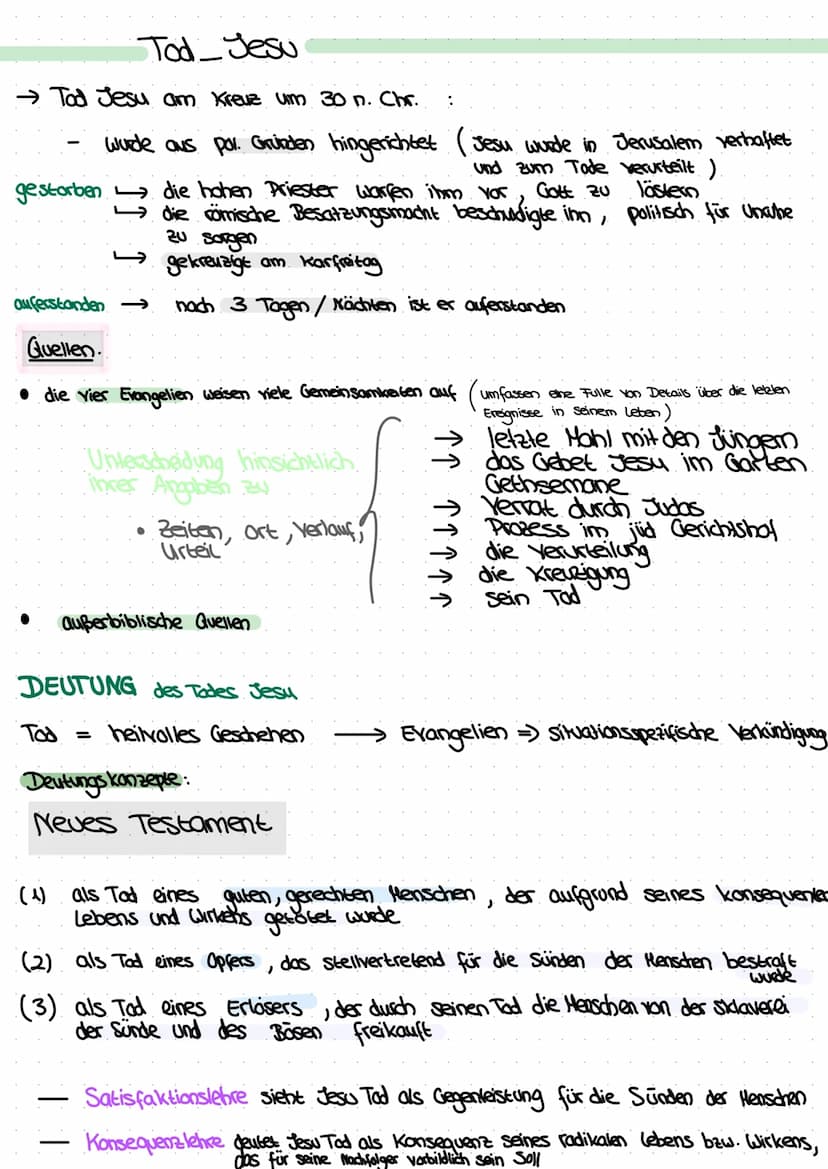 Tod_Jesu
→ Tod Jesu am Kreuz um 30 n. Chr. :
- wurde aus pol. Gründen hingerichtet (Jesu wurde in Jerusalem verhaftet
und zum Tode verurteilt)
gestorben ↳ die hohen Priester warfen ihm vor, Gott zu lästern
↳ die römische Besatzungsmacht beschuldigte ihn, politisch für Unruhe
zu sorgen
↳ gekreuzigt am Karfreitag
auferstanden → nach 3 Tagen/Nächten ist er auferstanden
Quellen.
• die vier Evangelien weisen viele Gemeinsamkeiten auf (umfassen eine Fülle von Details über die letzten
Ereignisse in seinem Leben)
→ letzte Mahl mit den Jüngern
→ das Gebet Jesu im Garten
Gethsemane
→ Verrat durch Judas
→ Prozess im jüd Gerichtshof
→ die Verurteilung
→ die Kreuzigung
→ sein Tod
Unterscheidung hinsichtlich
ihrer Angaben zu
• Zeiten, Ort, Verlauf,
Urteil
• außerbiblische Quellen
DEUTUNG des Todes Jesu
Tod = heilvolles Geschehen → Evangelien => situationsspezifische Verkündigung
Deutungskonzepte:
Neues Testament
(1) als Tod eines guten, gerechten Menschen, der aufgrund seines konsequenten
Lebens und Wirkens getötet wurde
(2) als Tod eines Opfers, das stellvertretend für die Sünden der Menschen bestraft
wurde
(3) als Tod eines Erlösers, der durch seinen Tod die Menschen von der Sklaverei
der Sünde und des Bösen freikauft
— Satisfaktionslehre sieht Jesu Tod als Gegenleistung für die Sünden der Menschen
— Konsequenzlehre deutet Jesu Tod als Konsequenz seines radikalen Lebens bzw. Wirkens,
das für seine Nachfolger vorbildlich sein soll